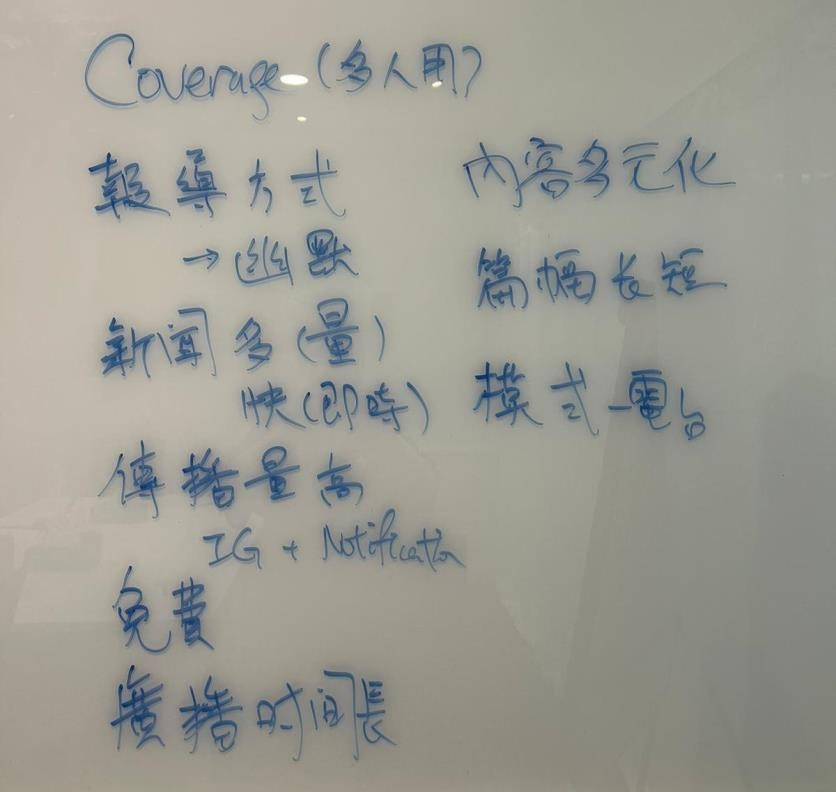 Coverage (多人用)
報導方式
→幽默
新闻多(量)
快(即時)
傳播量高
IG + Notification
免費
廣播时间長
內容多元化
篇幅长短
模式－電台